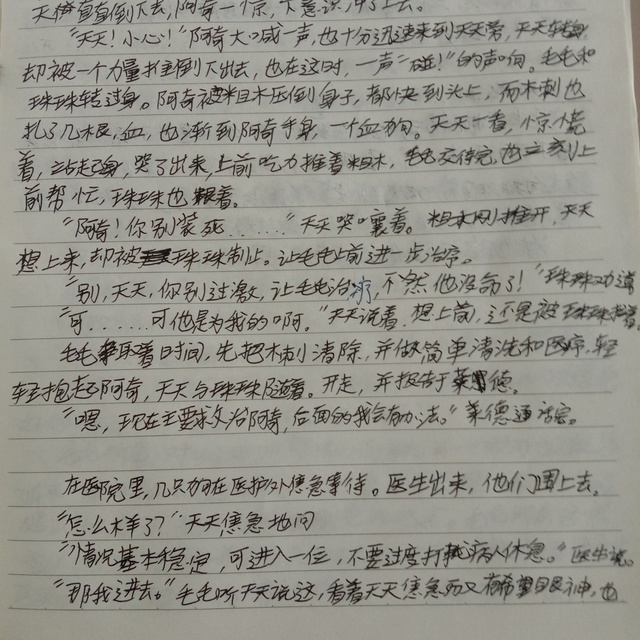 天伊直直倒下去，阿奇一惊，下意识冲了上去。
“天天！小心！”阿奇大喊一声，也十分迅速来到天天旁，天天转身
却被一个力量推倒下出去，也在这时，一声“碰！”的声响。毛毛和
珠珠转过身。阿奇被粗木压倒身子，都快到头上，而木刺也
扎了几根，血，也渐到阿奇手身，一个血狗。天天一看，惊慌
着，站起身，哭了出来，上前吃力推着粗木，毛毛交待完也立刻上
前帮忙，珠珠也跟着。
“阿奇！你别装死……”天天哭嚷着。粗木刚推开，天天
想上来，却被珠珠制止。让毛毛上前进一步治疗。
“别，天天，你别过激，让毛毛治疗，不然他没命了！”珠珠劝道
“可……可他是为我的啊。”天天说着，想上前，还是被珠珠拦着。
毛毛争取着时间，先把木刺清除，并做简单清洗和医疗，轻
轻抱起了阿奇，天天与珠珠随着。开走，并报告于莱德。
“嗯，现在主要救治阿奇，后面的我会有办法。”莱德通话完。
在医院里，几只狗在医护外焦急等待。医生出来，他们围上去。
“怎么样了？”天天焦急地问
“情况基本稳定，可进入一位，不要过度打扰病人休息。”医生说。
“那我进去。”毛毛听天天说这，看着天天焦急而又有希望眼神，也